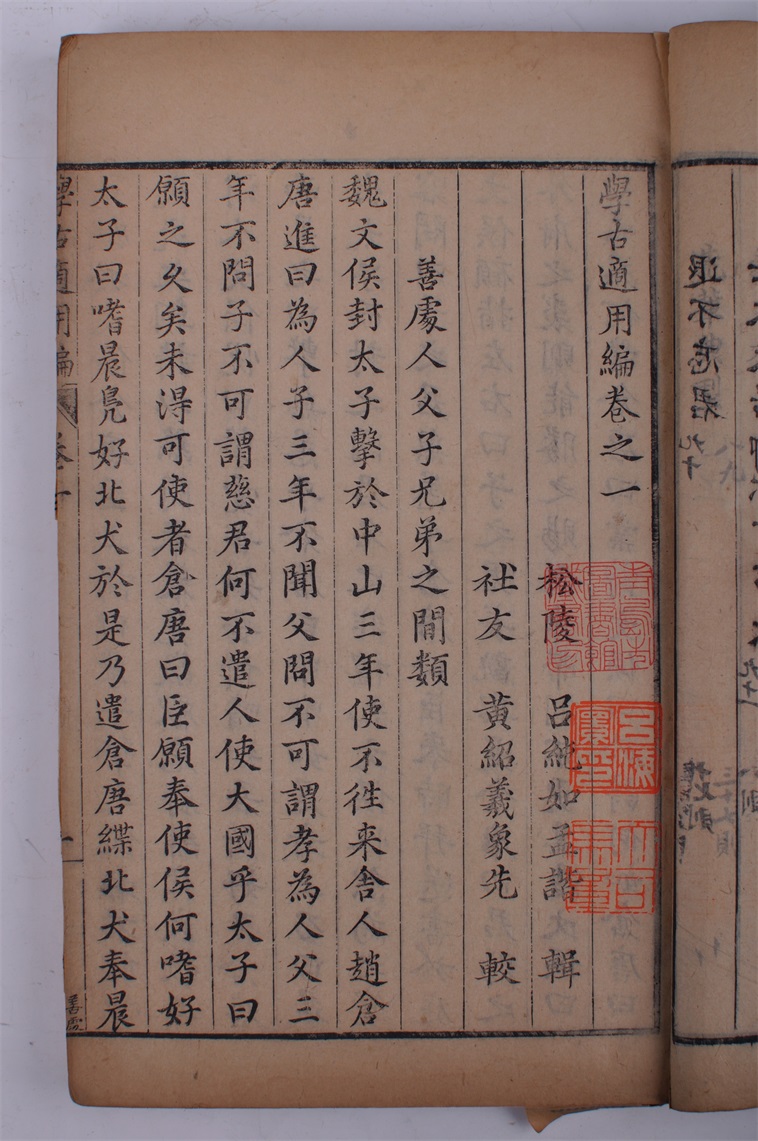 學古適用編卷之一
松陵 呂純如孟諧父 輯
社友 黄紹羲象先 較
善處人父子兄弟之間類
魏文侯封太子擊於中山三年使不徃来舎人趙倉
唐進曰為人子三年不聞父問不可謂孝為人父三
年不問子不可謂慈君何不遣人使大國乎太子曰
願之久矣未得可使者倉唐曰臣願奉使侯何嗜好
太子曰嗜晨鳧好北犬於是乃遣倉唐緤北犬奉晨
學古適用編 卷一
一
善處
退不忘君 九十